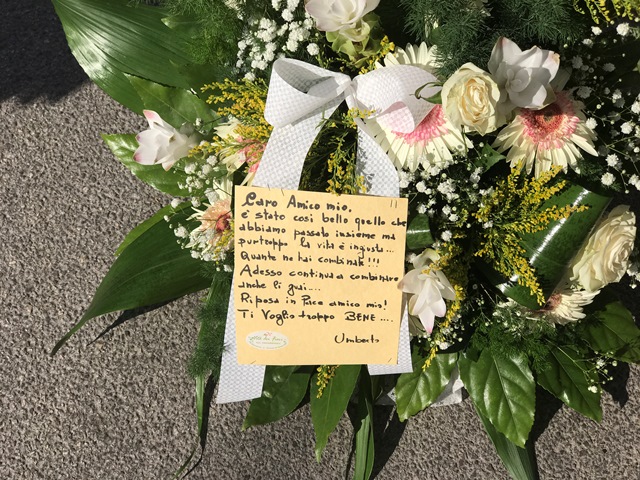 Caro Amico mio,
è stato così bello quello che
abbiamo passato insieme ma
purtroppo la vita è ingiusta...
Quante ne hai combinate!!!
Adesso continua a combinare
anche lì guai....
Riposa in Pace amico mio!
Ti Voglio troppo BENE ....
Umberto